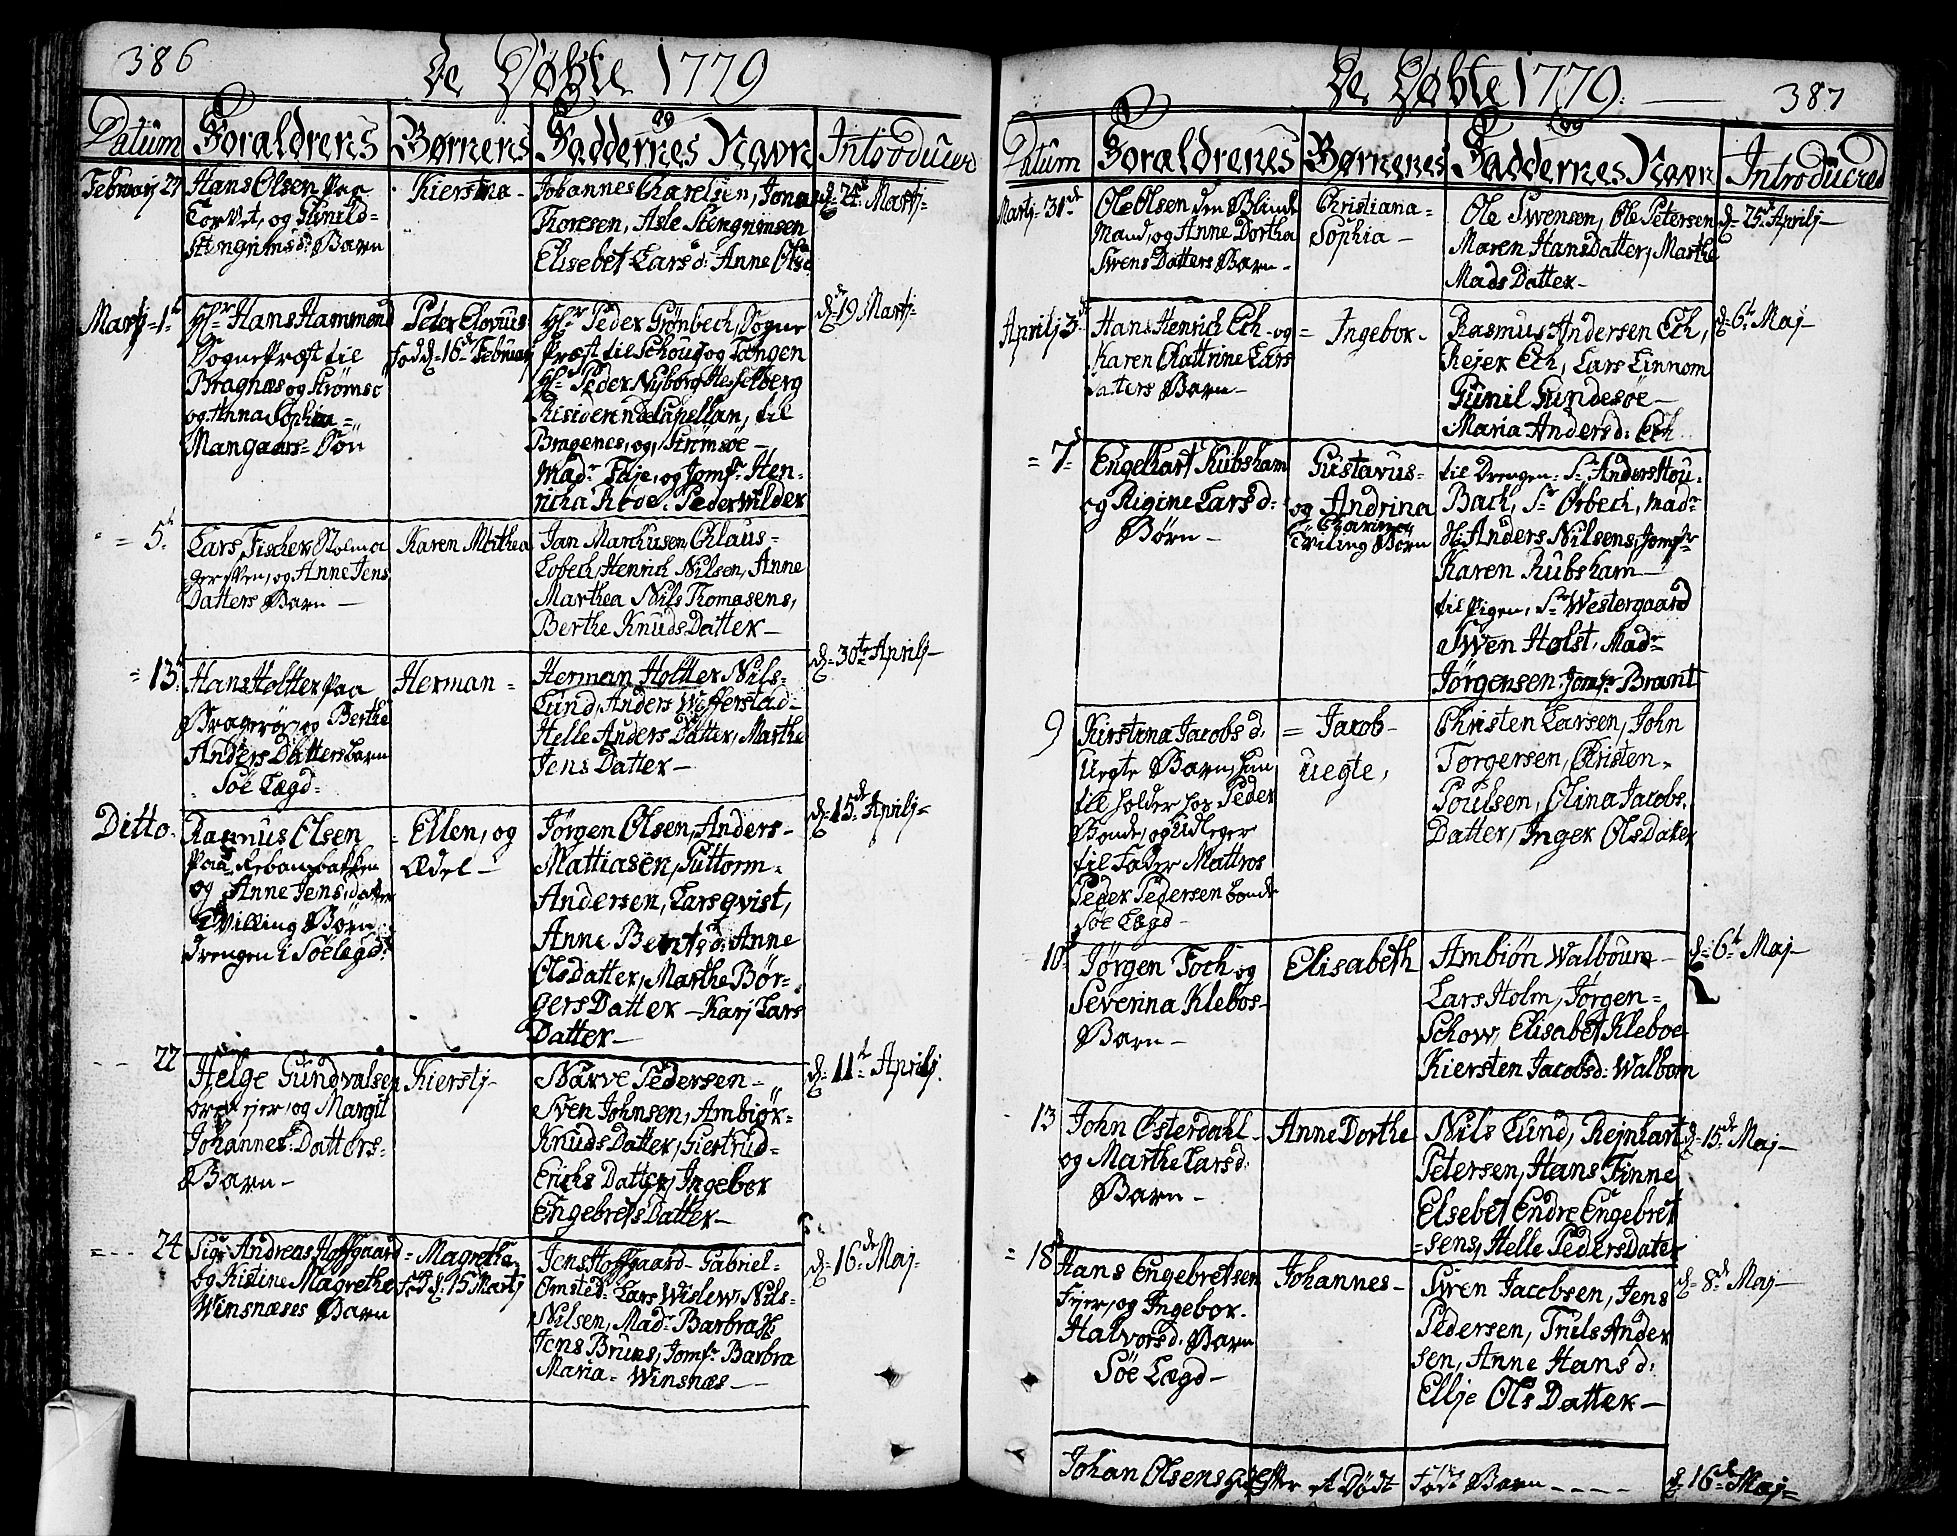 386
De Døbte 1779
Datum
Foraldrens
Børnens
og
Faddernes Navn
Introducered
Februarj 27
Hans Olsen paa
Torvet, og Gunild
Stengrimsd: Barn
Kierstina
Johannes Charelsen, Jonas
Thoresen, Asle Stengrimsen
Elisebet Larsd: Anne Olsd
d: 22d Martj
Martj 1t
Hr Hans Hammond
Sogne Præst til
Bragnæs og Strømsø
og Anna Sophia
Mangaars Søn
Peter Clovius
fød d: 16d Februarj
Hr Peder Grønbech, Sogne
Præst til Schouг og Tangen
Hr Peder Nyborg Hesselberg
Residerende Capellan, til
Bragenes, og Strømsøe
Mad: Tilje, og Jomfr Hen-
richa Rode. Peder Wilder
d: 19 Martj
5t
Lars Fischer Holma
og Anne Jens
Datters Barn
Karen Mathea
Jan Marchusen Chlaus
Lobech, Henrich Nilsen, Anne
Marthea Nils Thomasens,
Berthe Knuds Datter
13t
Hans Holtter paa
Bragerøe, og Berthe
Anders Datters barn
Søe Lægd
Herman
Herman Holtter Nils
Lund, Anders Wefferstad
Helle Anders Datter, Marthe
Jens Datter
d: 30te Aprilj
Ditto
Rasmus Olsen
paa Rebanebakken
og Anne Jens datter
Tvilling Børn
drengen i Søelægd:
Ellen, og
Ædel
Jørgen Olsen, Anders
Mattiasen, Guttorm
Andersen, Lars qvist,
Anne Bentsd: Anne
Olsdatter, Marthe Bør-
gers Datter Karj Lars
Datter
d: 15de Aprilj
22
Helge Gundvalsen
og Margit
Johannes Datters
Barn
Kierstj
Narve Pedersen
Sven Johnsen, Ambiør
Knuds Datter, Giertrud
Erichs Datter, Ingebor
Engebrets Datter
d: 11t Aprilj
24
Sigr Andreas Hoffgaard
og Kistine Magrethe
Winsnæses Barn
Magretha
fød d: 15 Martj
Jens Hoffgaard Gabriel
Omsted. Lars Wislew Nils
Nilsen, Mad: Barbra
Jens Bruns, Jomfr Barbra
Maria Winsnæs
d: 16de Maj
De Døbte 1779.
387
Datum
Foraldrenes
Børnenes
og
Faddernes Navn
Introduced
Martj 31de
Ole Olsen den Blinde
Mand, og Anne Dortha
Svens Datters Barn
Christiana
Sophia
Ole Swensen, Ole Petersen
Maren Hans Datter, Marthe
Mads Datter
d: 25d Aprilj
Aprilj 3d
Hans Henrich Ech og
Karen Chattrine Lars
datters Barn
Ingebor
Rasmus Andersen Ech,
Rejer Ech, Lars Linnom
Gunil Gundesøe
Maria Andersd: Ech
d: 6t Maj
7d
Engelhart Kubsham
og Rigine Larsd:
Børn
Gustavus
og Andrina
Tviling Børn
til drengen: Sr Anders Hou
Bach, Sr Ørbech, Madr
Anders Nilsens, Jomfr
Karen Kubsham
til pigen, Sr Westergaard
Swen Holst, Madr
Jørgensen. Jomfr Brant
9
Kirstina Jacobs d.
Uegte Barn, hun
til holder hos Peder
Bonde, og Udleger
til Fader Mattros
Peder Pedersen bonde
Søe Lægd
Jacob
uegte,
Christen Larsen, John
Torgersen, Christen
Poulsen, Olina Jacobs
Datter, Inger Olsdater
10d
Jørgen Foch og
Severina Klebos
Barn
Elisabeth
Ambiön Walboum
Lars Holm, Jørgen
Schow, Elisabet Kleboe
Kiersten Jacobsd: Walbom
d: 6t Maj
13
John Østerdahl
og Marthe Larsd:
Barn
Anne Dorthe
Nils Lund, Rejnhart
Petersen, Hans Finne
Elsebet Endre Engebret
sens, Helle Pedersdater
d: 15de Maj
18d
Hans Engebretsen
Fjer, og Ingebor
Halvorsd: Barn
Søe Lægd
Johannes
Sven Jacobsen, Jens
Pedersen, Truls Ander
sen, Anne Hans d:
Ellje Ols Datter
d: 8d Maj
Johan Olsens
efter et Dødt Født Barn
d: 16de Maj